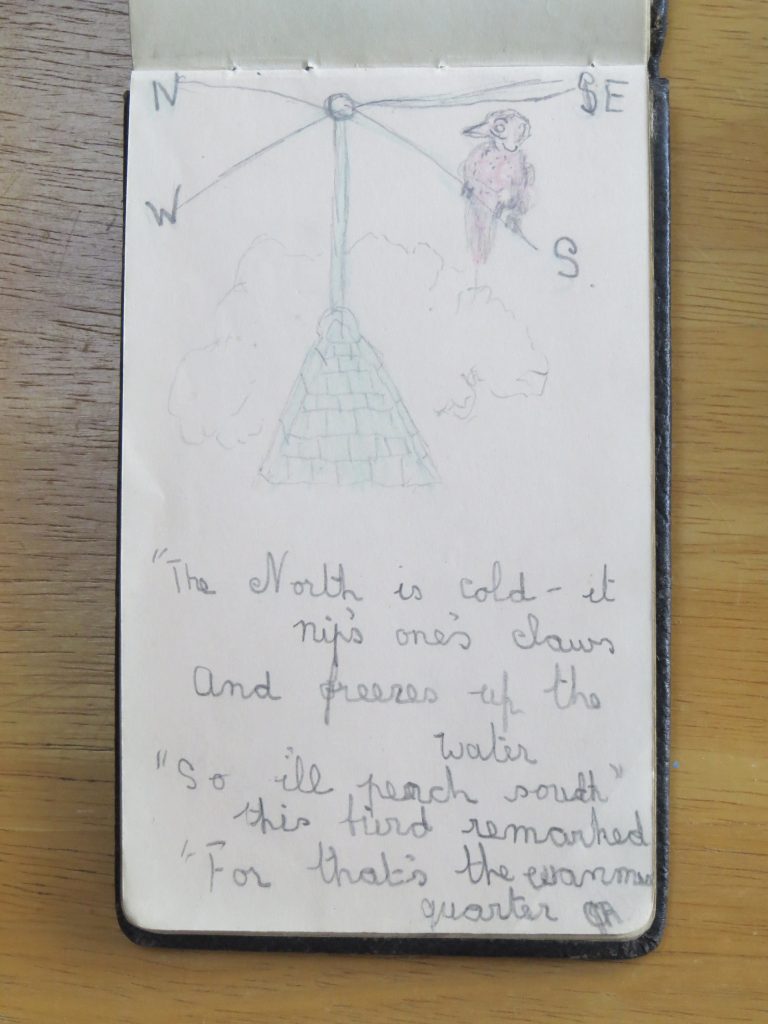 N
E
W
S.
"The North is cold - it
nip's one's claws
And freezes up the
water
"So ill perch south"
this bird remarked
"For that's the warmer
quarter